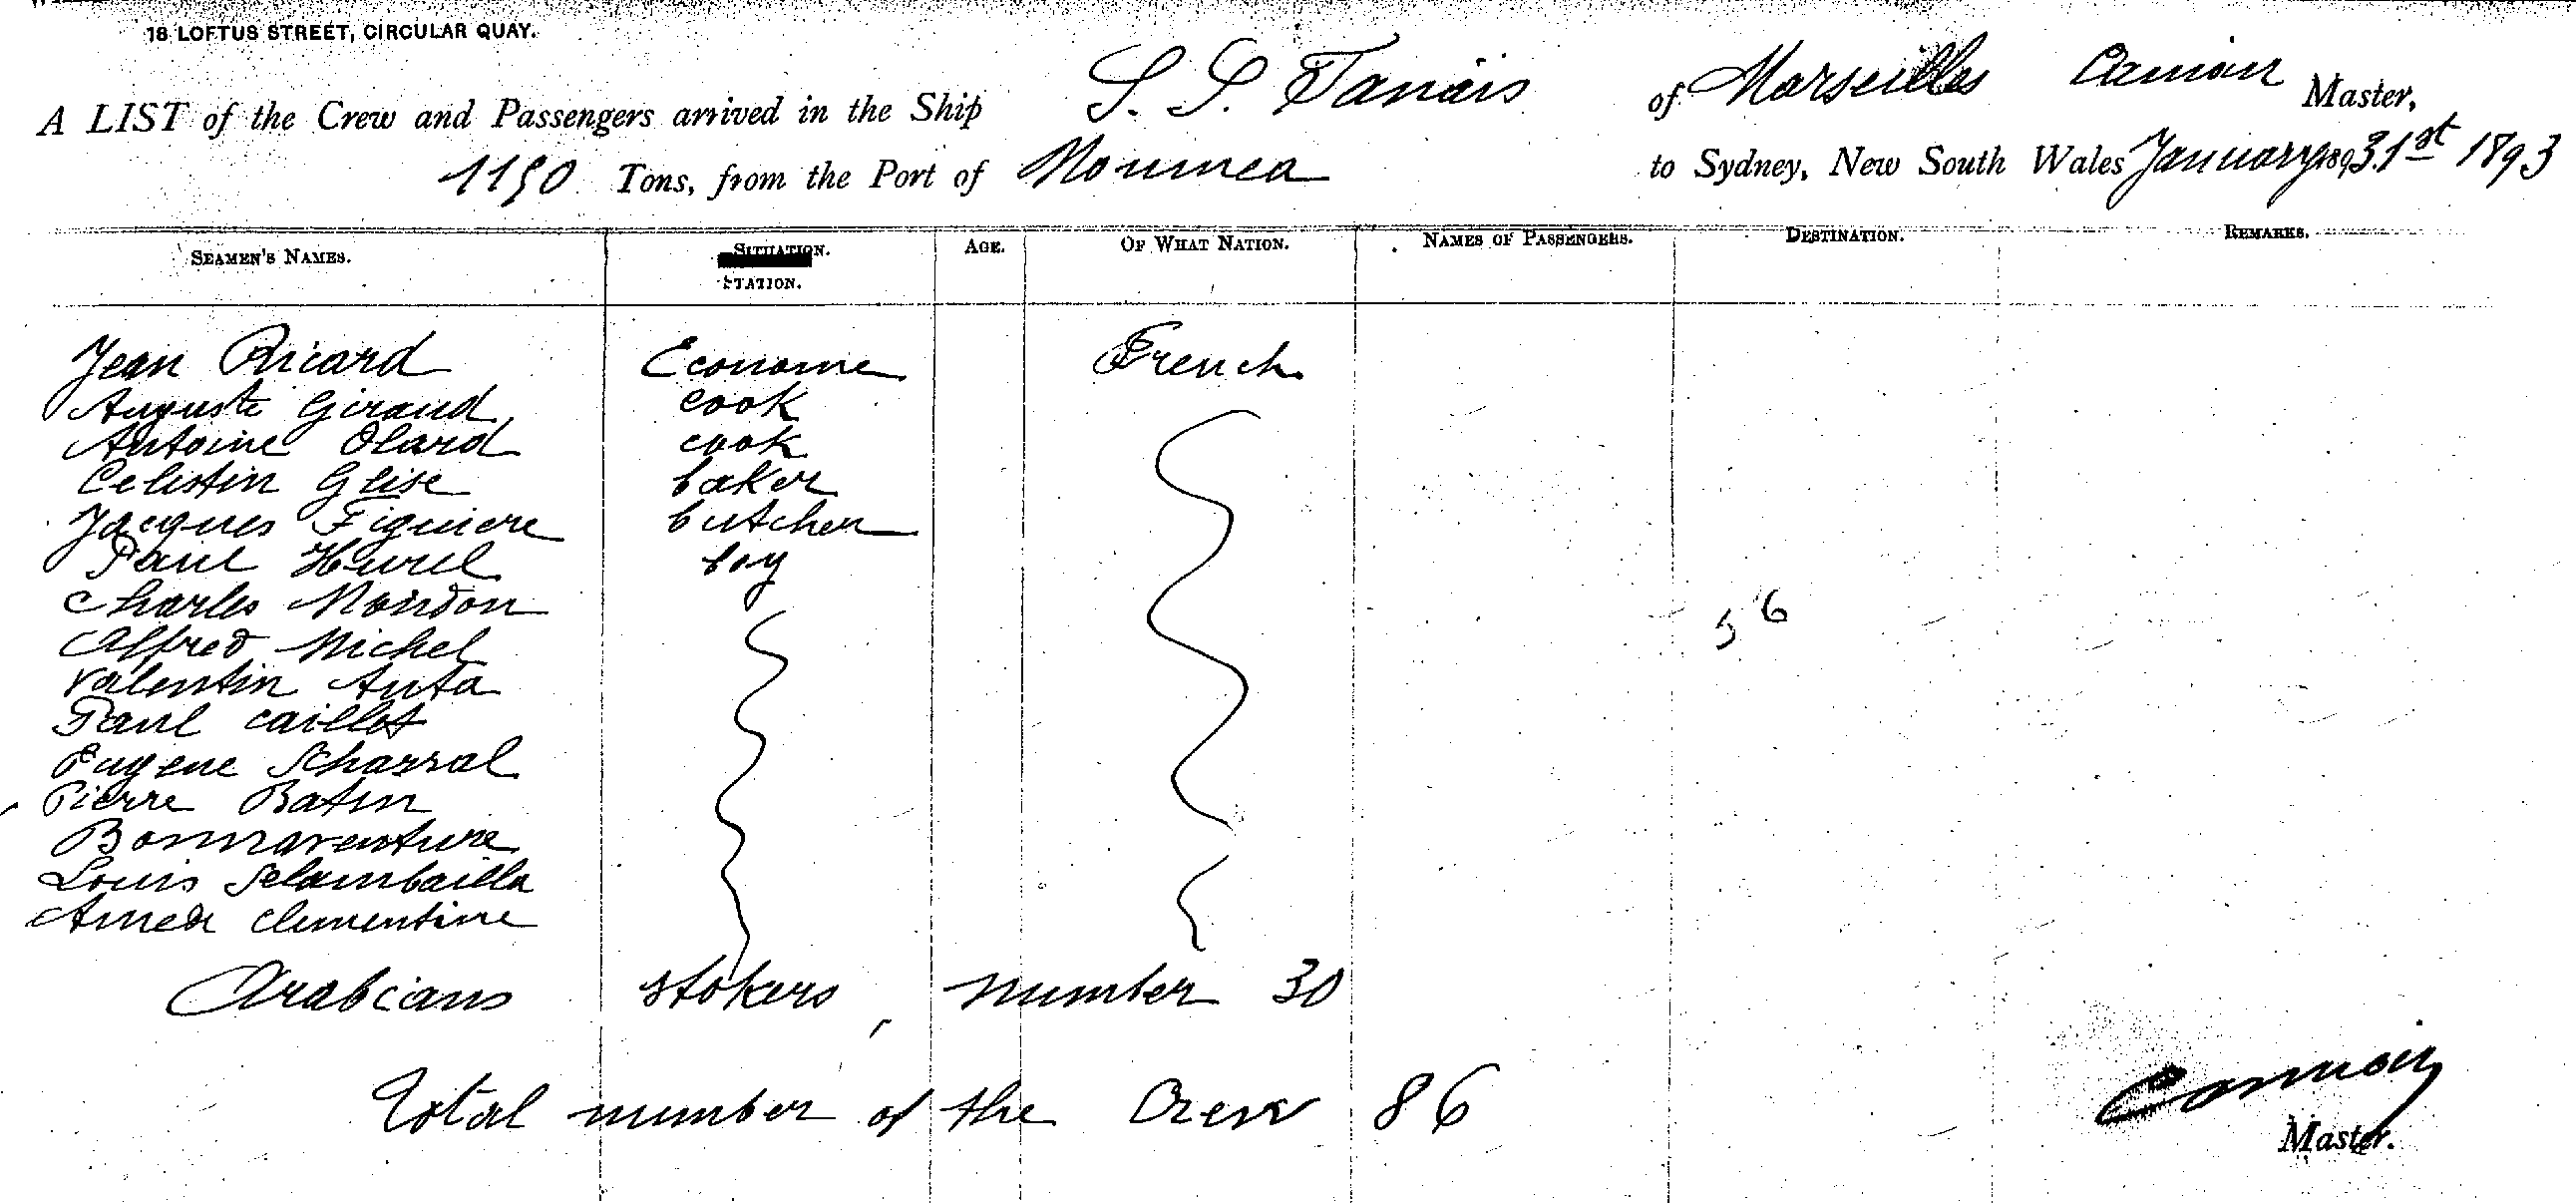 18 LOFTUS STREET, CIRCULAR QUAY.
A LIST of the Crew and Passengers arrived in the Ship S. S. Tanais of Marseilles Master,
1190 Tons, from the Port of Noumea to Sydney, New South Wales January 189 31st 1893
SEAMEN'S NAMES. SITUATION. STATION. AGE. OF WHAT NATION. NAMES OF PASSENGERS. DESTINATION. REMARKS.
Jean Ricard Econome French
Auguste Giraud cook
Antoine Olard cook
Celistin Glise baker
Jacques Figuiere butcher
Paul Hurel boy
Charles Mondon
Alfred Michel 56
Valentin Auta
Paul Caillot
Eugene
Pierre Batin
Bonnaventure
Louis
Clementine
Arabians stokers, number 30
Total number of the Crew 86
Master.